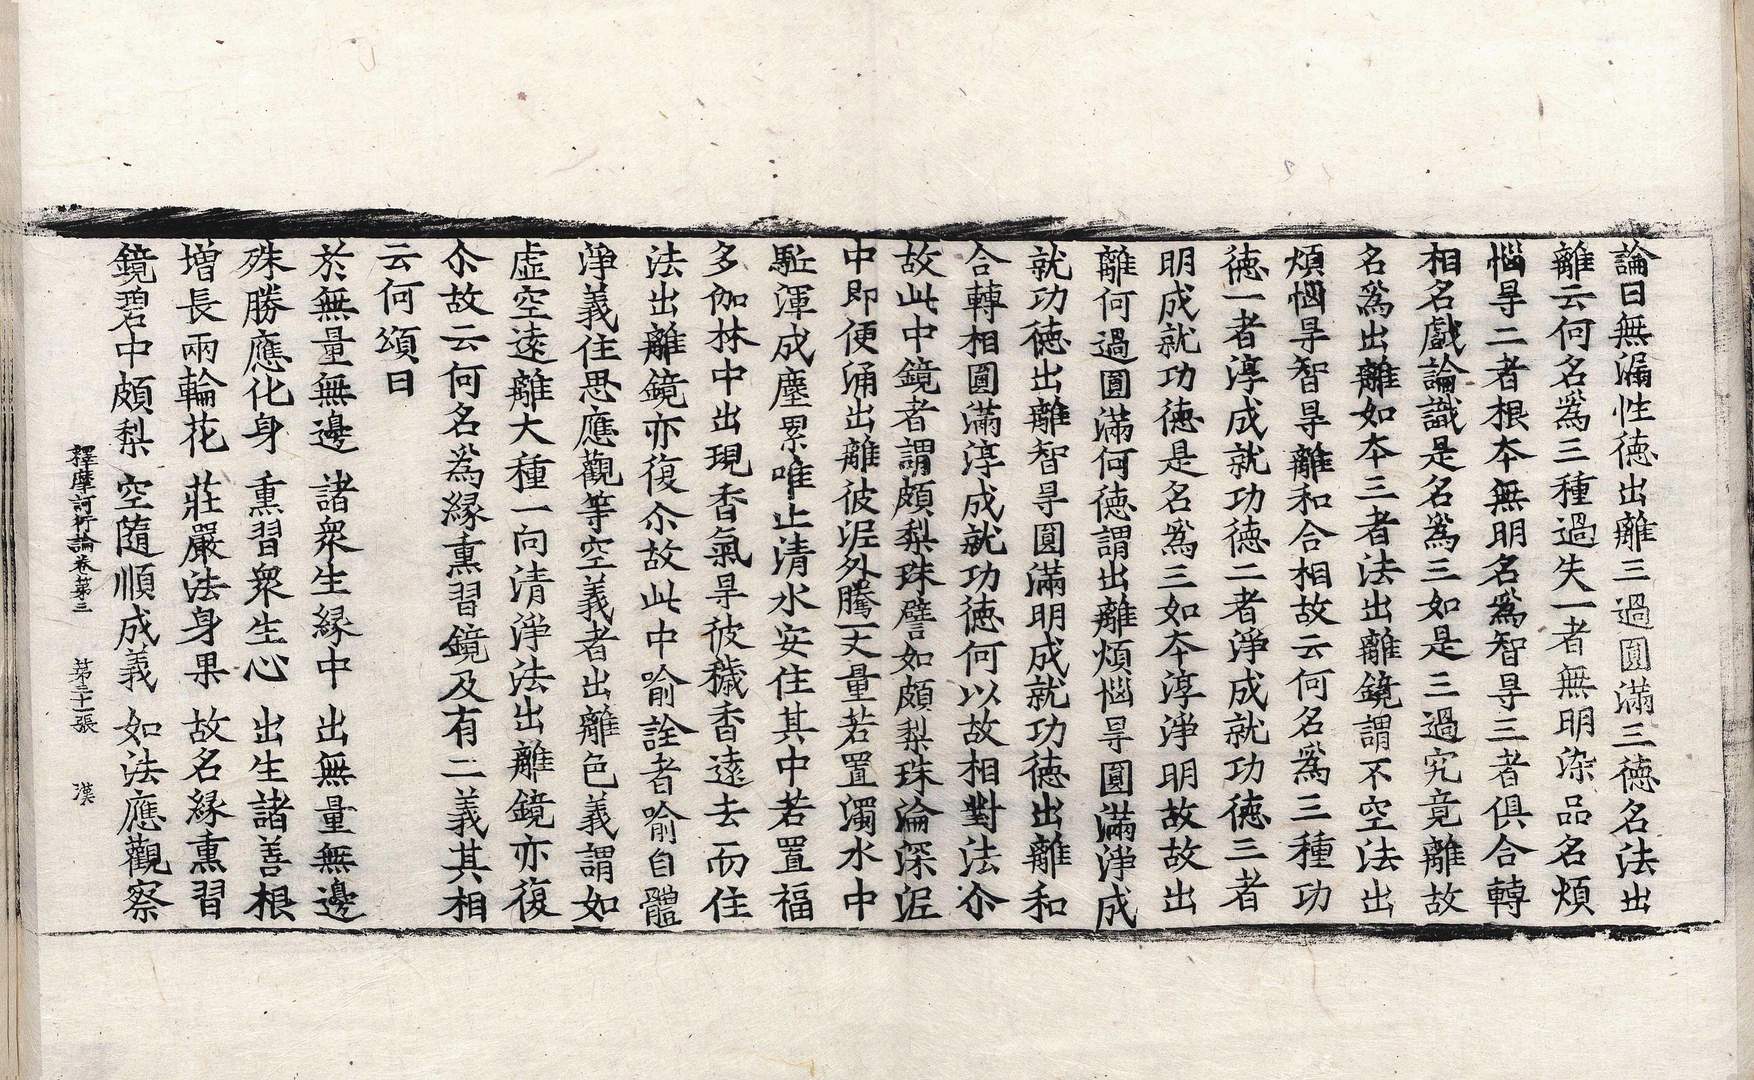 論曰無漏性德出離三過圓滿三德名法出
離云何名爲三種過失一者無明染品名煩
惱㝵二者根夲無明名爲智㝵三者俱合轉
相名戲論識是名爲三如是三過究竟離故
名爲出離如夲三者法出離鏡謂不空法出
煩惱㝵智㝵離和合相故云何名爲三種功
德一者淳成就功德二者淨成就功德三者
明成就功德是名爲三如夲淳淨明故故出
離何過圓滿何德謂出離煩惱㝵圓滿淨成
就功德出離智㝵圓滿明成就功德出離和
合轉相圓滿淳成就功德何以故相對法尒
故此中鏡者謂頗梨珠譬如頗梨珠淪深泥
中即便涌出離彼泥外騰一丈量若置濁水中
駈渾成塵累唯止清水安住其中若置福
多伽林中出現香氣㝵彼穢香遠去而住
法出離鏡亦復尒故此中喻詮者喻自體
淨義住思應觀等空義者出離色義謂如
虛空遠離大種一向清淨法出離鏡亦復
尒故云何名爲緣熏習鏡及有二義其相
云何頌曰
於無量無邊 諸衆生緣中 出無量無邊
殊勝應化身 熏習衆生心 出生諸善根
增長兩輪花 莊嚴法身果 故名緣熏習
鏡碧中頗梨 空隨順成義 如法應觀察
釋摩訶衍論卷第三 第二十二張 漢